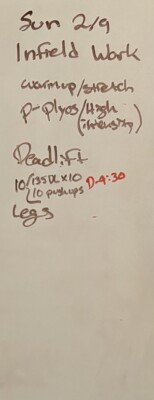 Sun 2/9
Infield Work
warmup/stretch
P-Plyos/High
(intensity)
Deadlift
10/135DLx10 D-4:30
10 pushups
Legs